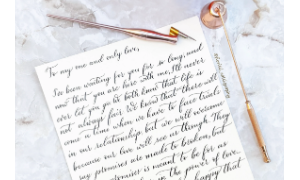 To my one and only love,
I've been waiting for you for so long, and
now that you are here with me, I'll never
ever let you go. We both know that life is
not always fair. We know that there will
come a time when we have to face trials
in our relationship but we will welcome
because our love will see us through. They
my promises are made to be broken, but
promises is meant to be for as
in the power of love.
happy that